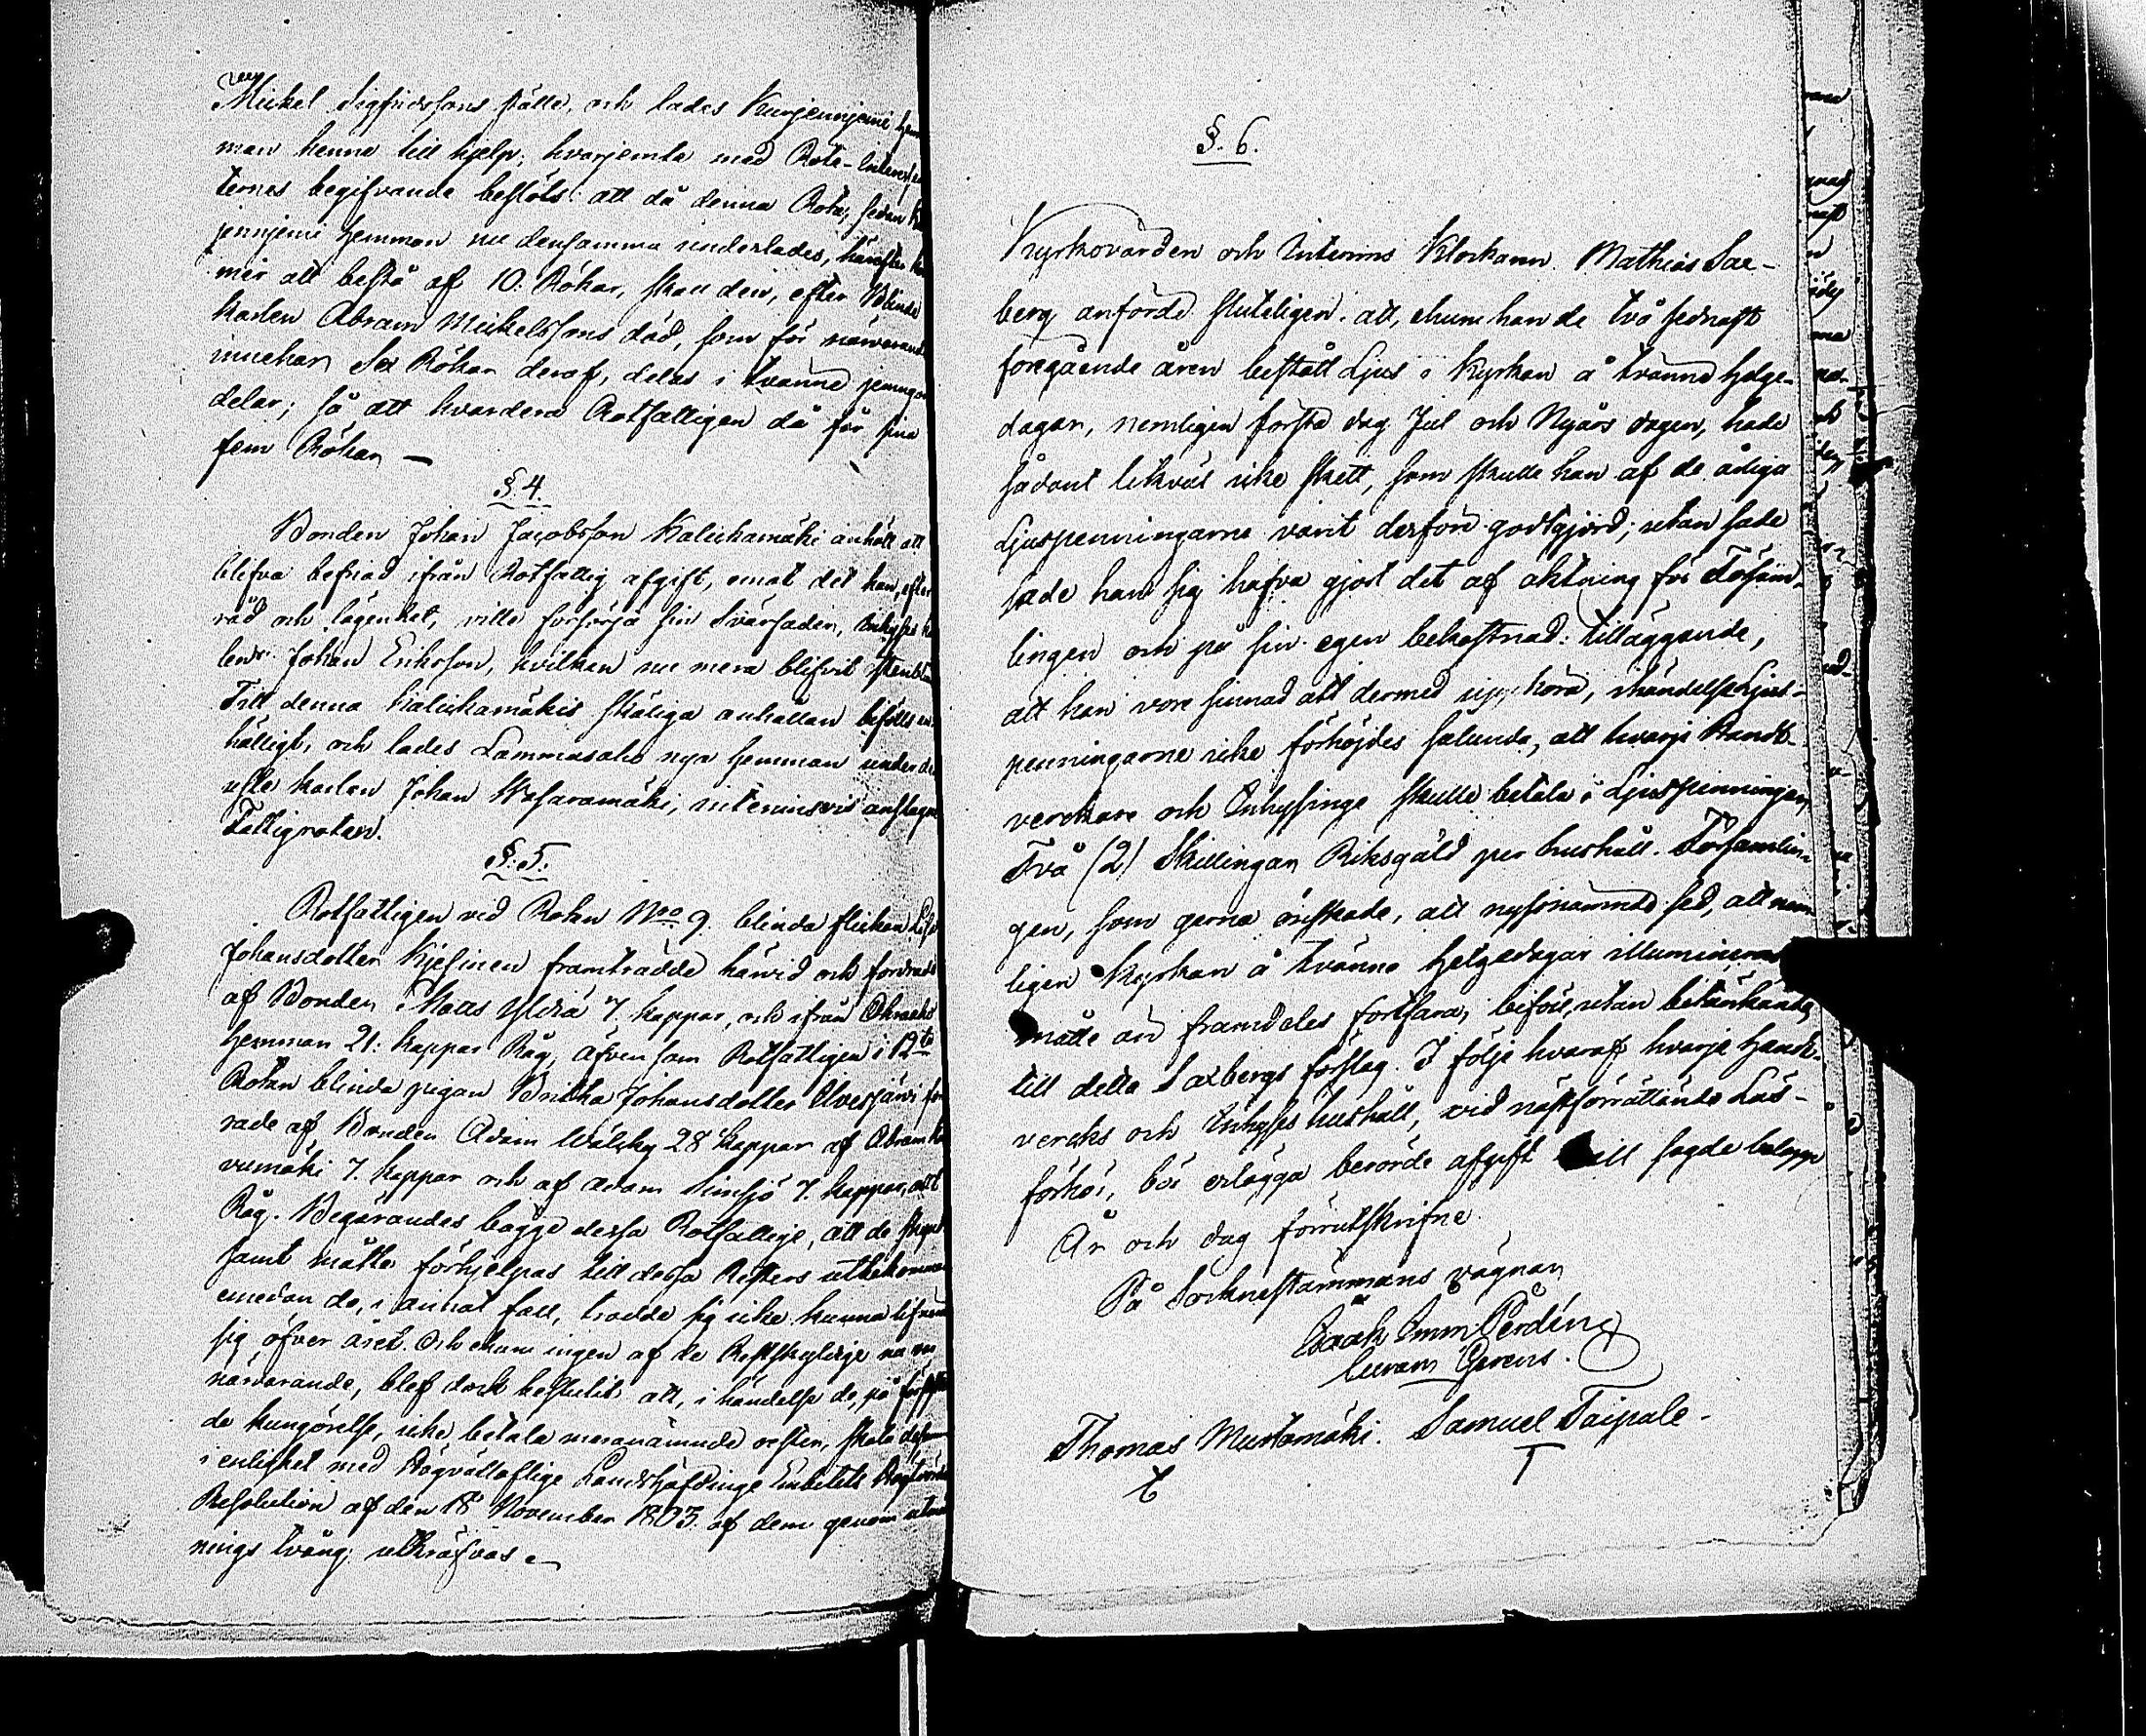 Mickel Sigfridssons ställe, och lades Kurjenniemi hem
man henne till hjelp; hvarjemte med Rote-Intressen
ternes begifvande beslöts: att då denna Rota, sedan
jenniemi hemman nu densamma underlades, härefter
mer att bestå af 10. Rökar, skall den, efter Blinde
karlen Abram Mickelssons död, som för närvarande
innehar Sex Rökar deraf, delas i tvänne jemngoda
delar; så att hvardera Rotfattigen då får sina
fem Rökar —
§. 4.
Bonden Johan Jacobsson Kalukamäki anhöll att
blifva befriad ifrån Rotfattig afgift, emot det han, efter
råd och lägenhet, ville försörja sin Svärfader, Inhyses
Johan Eriksson, hvilken nu mera blifvit stenblind
Till denna Kalukamäkis skäliga anhållan bifölls en
hälligt, och lades Lammasaho nya hemman under
usle karlen Johan Wasaramäki, interimsvis anslagne
Fattigrotan.
§. 5.
Rotfattigen vid Rotan Nro 9. blinda flickan Lisa
Johansdotter Kjelinen framträdde härvid och fordrade
af Bonden Matts Ylirä 7. kappar, och ifrån
hemman 21. kappar Råg, äfvensom Rotfattigen i 12te
Rotan blinda pigan Britha Johansdotter Elvesjärvi for
rade af Bonden Adam Wälihy 28 kappar af Abram
vumäki 7. kappar och af Adam Simsjö 7. kappar, allt
Råg. Begärandes bägge dessa Rotfattige, att de
samt måtte förhjelpas till dessa Resters utbekomma
emedan de, i annat fall, trodde sig icke kunna lifnära
sig öfver året. Och ehuru ingen af de Restskyldige var nu
närvarande, blef dock beslutit att, i händelse de, på
de kungörelse, icke betala meranämnde rester, skola
i enlighet med Högvälloflige Landshöfdinge Embetets Högtvörda
Resolution af den 18 November 1803. af dem genom utmät
nings tvång utkräfvas.
§. 6.
Kyrkovärden och Interims Klockaren Mathias Sax-
berg anförde sluteligen: att, ehuru han de två sednast
föregående åren bestått Ljus i Kyrkan å tvänne helge-
dagar, nemligen första dag Jul och Nyårs dagen, hade
sådant likväl icke skett, som skulle han af de årliga
Ljuspenningarne varit derföre godtgjord; utan sade
sade han sig hafva gjort det af aktning för Försam-
lingen och på sin egen bekostnad: tilläggande,
att han vore sinnad att dermed upphöra, i händelse Ljus-
penningarne icke förhöjdes sålunda, att hvarje Handt-
verkare och Inhysinge skulle betala i Ljuspenningar
Två (2) Skillingar Riksgäld per hushåll. Församlin-
gen, som gerna önskade, att nyssnämnde sed, att nem
ligen Kyrkan å tvänne helgedagar illumineras
måtte än framdeles fortfara, biföll utan betänkande,
till detta Saxbergs förslag. I följe hvaraf hvarje Handt-
verks och Inhyses hushåll, vid näst förrättande Läs-
förhör, bör erlägga berörde afgift till sagde belopp
År och dag förrutskrifne.
På Sockenstämmans vägnar
Isaak Imm: Perdén
Curam Gerens.
Thomas Mustamäki. Samuel Taipale.